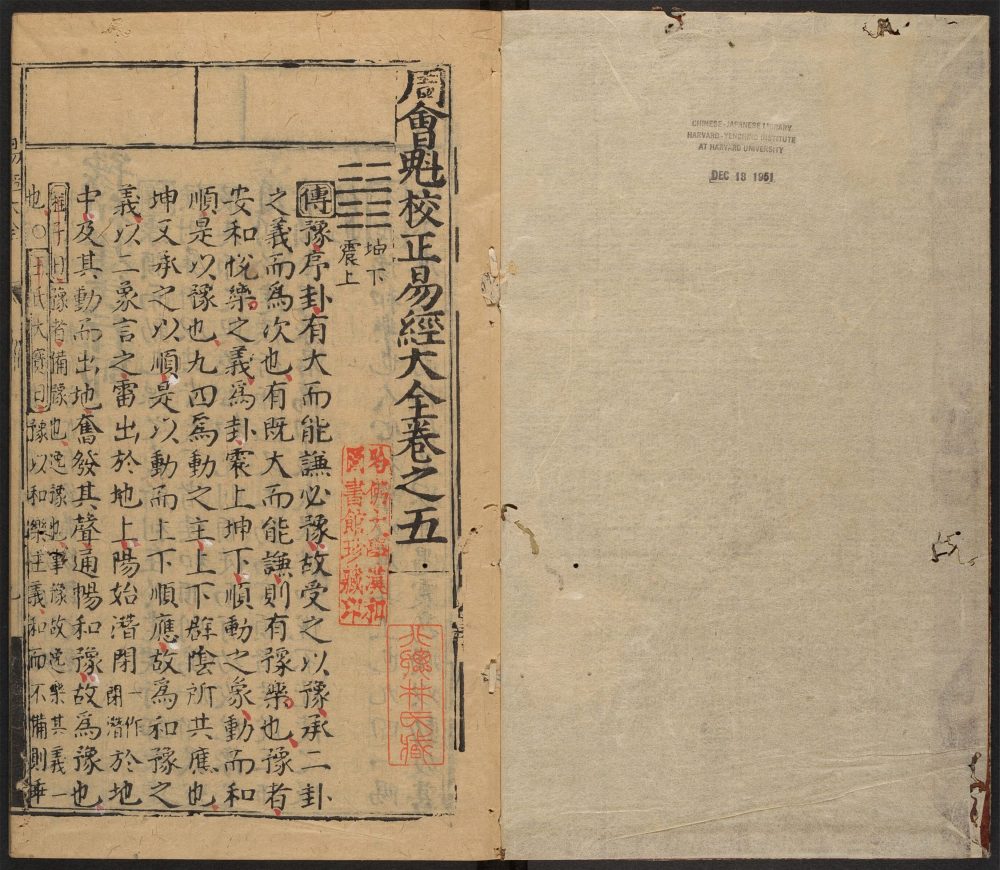 CHINESE-JAPANESE LIBRARY
HARVARD-YENCHING INSTITUTE
AT HARVARD UNIVERSITY
DEC 18 1951
周會魁校正易經大全卷之五
坤下
震上
傳豫序卦有大而能謙必豫故受之以豫承二卦
之義而爲次也有既大而能謙則有豫樂也豫者
安和悅樂之義爲卦震上坤下順動之象動而和
順是以豫也九四爲動之主上下群陰所共應也
坤又承之以順是以動而上下順應故爲和豫之
義以二象言之雷出於地上陽始潛閉一作閉潛於地
中及其動而出地奮發其聲通暢和豫故爲豫也
程子曰豫者備豫也逸豫也事豫故逸樂其義一
也○王氏大寶曰豫以和樂爲義和而不備則
哈佛大學漢和
圖書館珍藏印
林氏藏